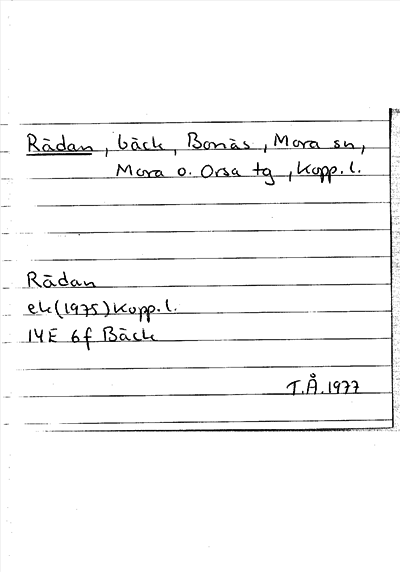 Rädan, bäck, Bonäs, Mora sn,
Mora o. Orsa tg, Kopp. l.
Rädan
ek (1975) Kopp. l.
14E 6f Bäck
T.Å. 1977